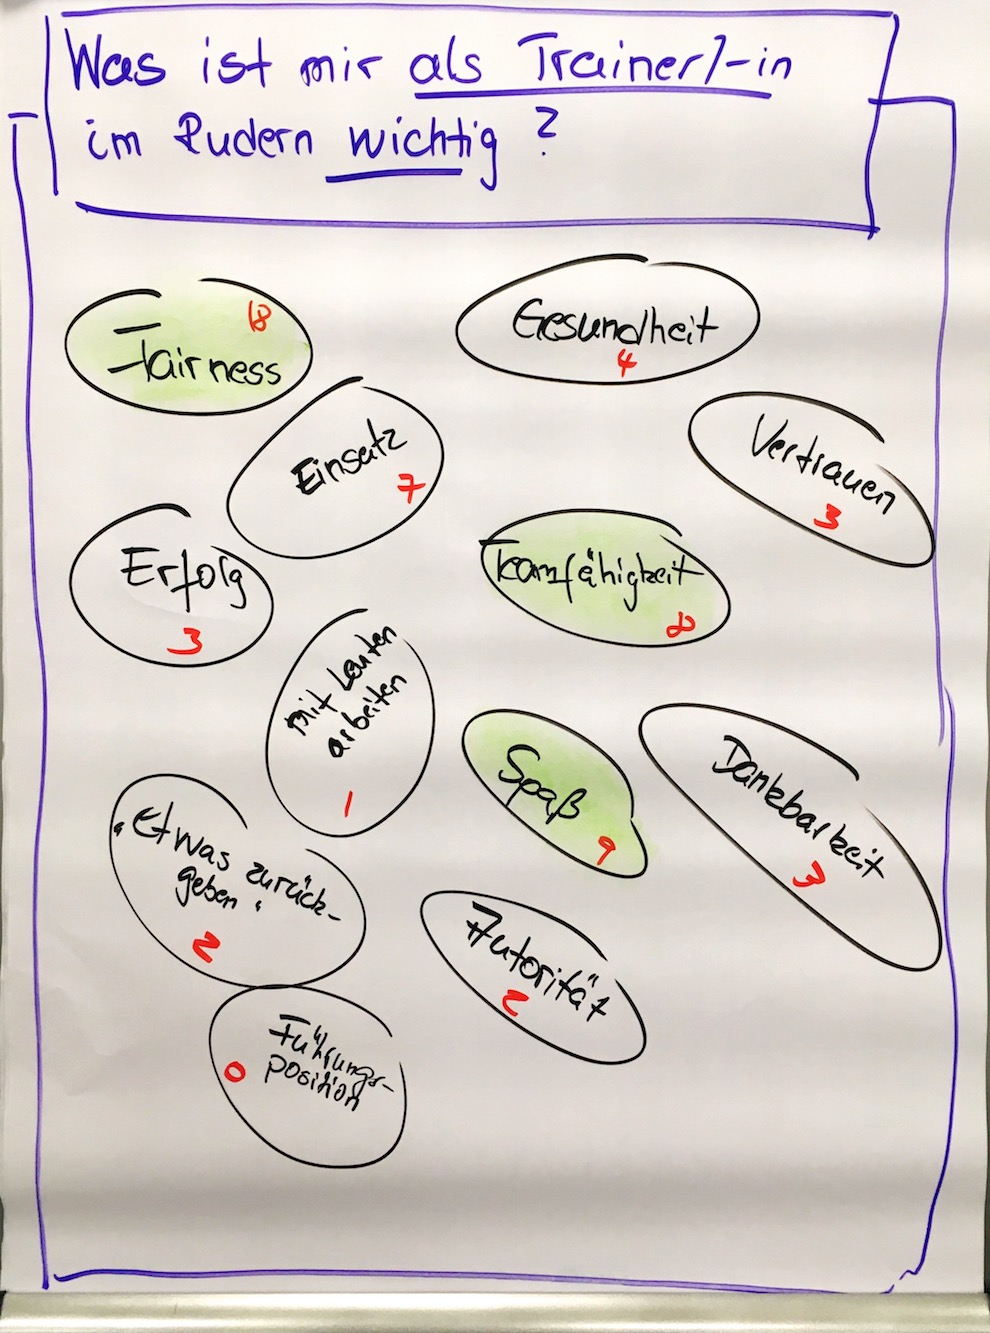 Was ist mir als Trainer/-in
im Rudern wichtig ?
18
Fairness
Gesundheit
4
Einsatz
7
Vertrauen
3
Erfolg
3
Teamfähigkeit
8
mit Leuten
arbeiten
1
Spaß
9
Dankbarkeit
3
"Etwas zurück-
geben"
2
Autorität
2
Führungs-
position
0